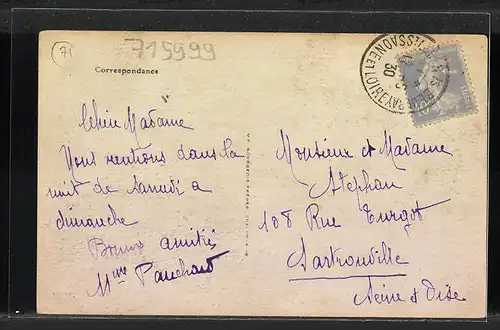 71
715999
Correspondance
Chère Madame
Nous rentrons dans la
nuit de Samedi a
dimanche
Bonnes amitiés
Mme Panchard
SAONE ET LOIRE
30
Monsieur et Madame
Stephan
108 Rue Turgot
Sartrouville
Seine et Oise